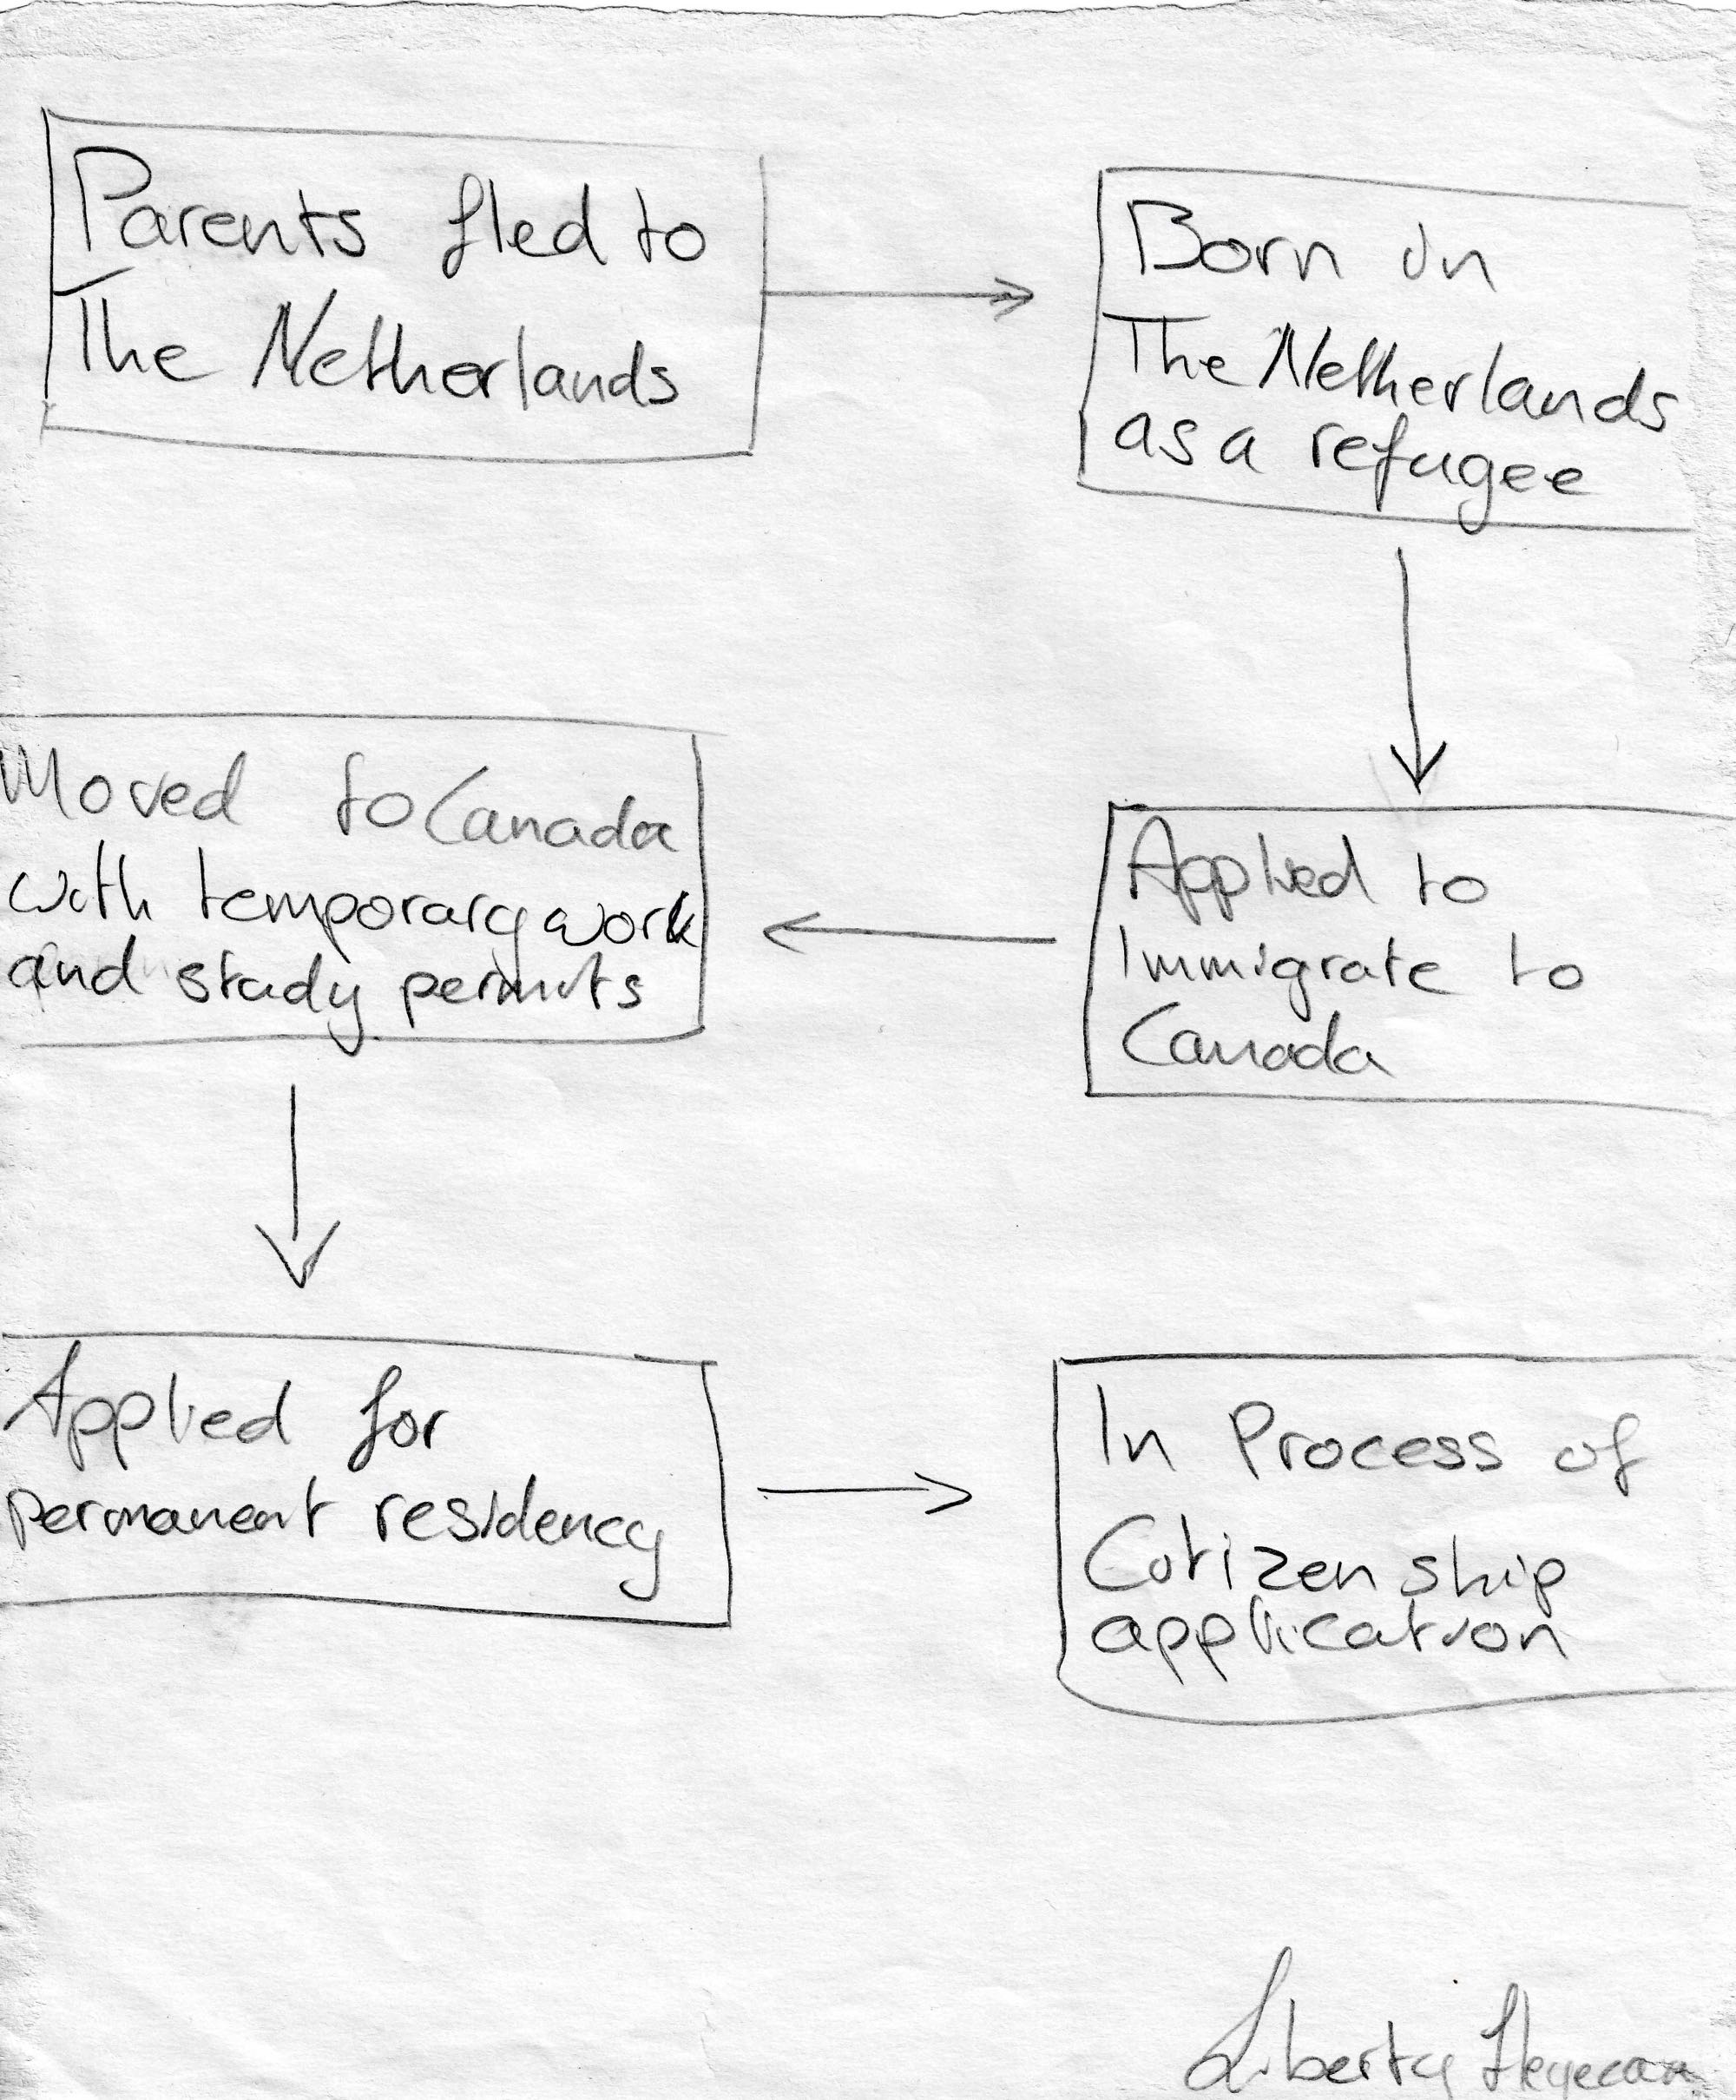 Parents fled to
The Netherlands
Born in
The Netherlands
as a refugee
Applied to
Immigrate to
Canada
Moved to Canada
with temporary work
and study permits
Applied for
permanent residency
In Process of
Citizenship
application
Liberty